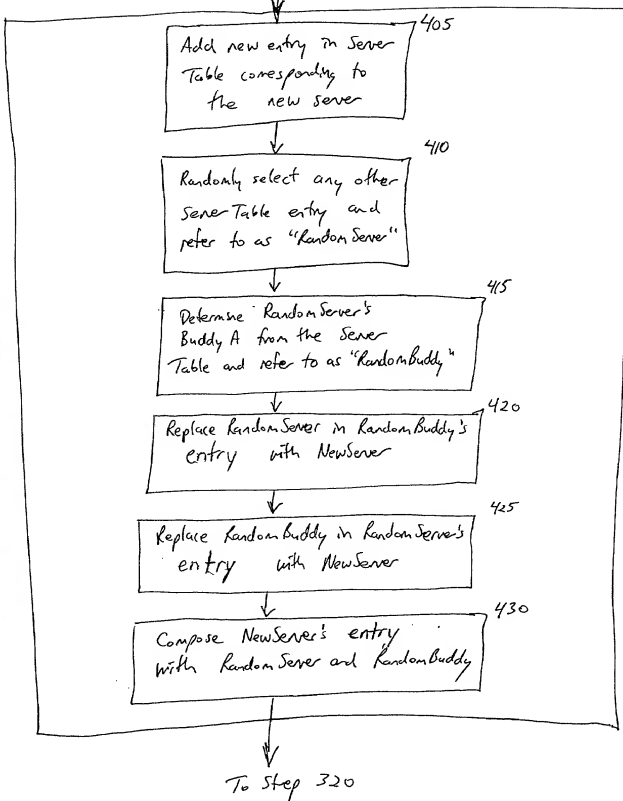 405
Add new entry in Server
Table corresponding to
the new server
410
Randomly select any other
Server Table entry and
refer to as "RandomServer"
415
Determine RandomServer's
Buddy A from the Server
Table and refer to as "RandomBuddy"
420
Replace RandomServer in RandomBuddy's
entry with NewServer
425
Replace RandomBuddy in RandomServer's
entry with NewServer
430
Compose NewServer's entry
with RandomServer and RandomBuddy
To Step 320